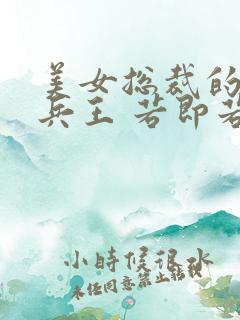 美女总裁的
兵王 若即若
小時候很水
未经同意禁止转载